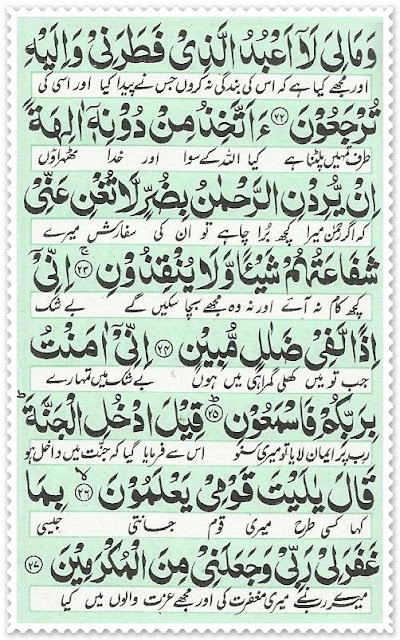 وَمَالِیَ لَاۤ اَعۡبُدُ الَّذِیۡ فَطَرَنِیۡ وَاِلَیۡهِ
اور مجھے کیا ہے کہ اس کی بندگی نہ کروں جس نے پیدا کیا اور اسی کی
تُرۡجَعُوۡنَ ﴿۲۲﴾ ءَاَتَّخِذُ مِنۡ دُوۡنِهٖۤ اٰلِهَةً
طرف تمہیں پلٹنا ہے کیا اللہ کے سوا اور خدا ٹھہراؤں
اِنۡ یُّرِدۡنِ الرَّحۡمٰنُ بِضُرٍّ لَّا تُغۡنِ عَنِّیۡ
کہ اگر رحمٰن میرا کچھ بُرا چاہے تو ان کی سفارش میرے
شَفَاعَتُهُمۡ شَیۡـًٔا وَّلَا یُنۡقِذُوۡنِ ﴿۲۳﴾ۚ اِنِّیۡۤ
کچھ کام نہ آئے اور نہ وہ مجھے بچا سکیں گے بے شک
اِذًا لَّفِیۡ ضَلٰلٍ مُّبِیۡنٍ ﴿۲۴﴾ اِنِّیۡۤ اٰمَنۡتُ
جب تو میں کھلی گمراہی میں ہوں بے شک میں تمہارے
بِرَبِّكُمۡ فَاسۡمَعُوۡنِ ﴿۲۵﴾ؕ قِیۡلَ ادۡخُلِ الۡجَنَّةَ ؕ
رب پر ایمان لایا تو میری سنو اس سے فرمایا گیا کہ جنّت میں داخل ہو
قَالَ یٰلَیۡتَ قَوۡمِیۡ یَعۡلَمُوۡنَ ﴿۲۶﴾ۙ بِمَا
کہا کسی طرح میری قوم جانتی جیسی
غَفَرَ لِیۡ رَبِّیۡ وَجَعَلَنِیۡ مِنَ الۡمُكۡرَمِیۡنَ ﴿۲۷﴾
میرے رب نے میری مغفرت کی اور مجھے عزت والوں میں کیا